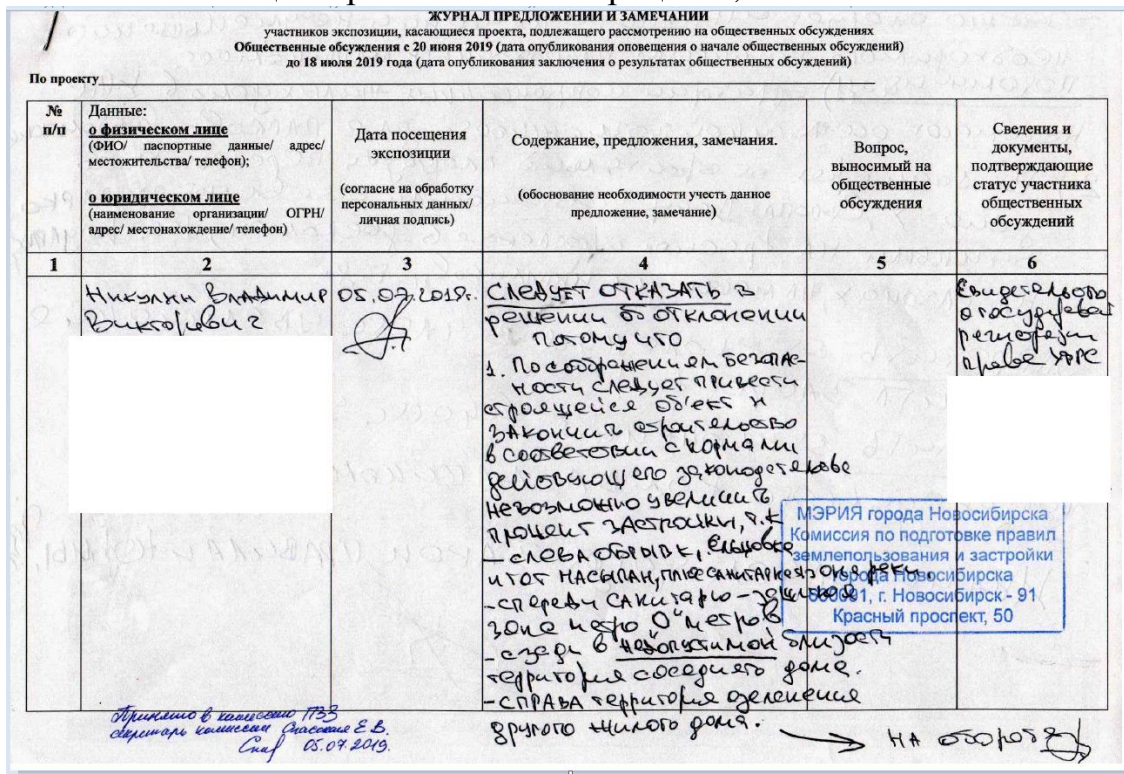 1
ЖУРНАЛ ПРЕДЛОЖЕНИЙ И ЗАМЕЧАНИЙ
участников экспозиции, касающиеся проекта, подлежащего рассмотрению на общественных обсуждениях
Общественные обсуждения с 20 июня 2019 (дата опубликования оповещения о начале общественных обсуждений)
до 18 июля 2019 года (дата опубликования заключения о результатах общественных обсуждений)
По проекту
№ п/п
Данные:
о физическом лице
(ФИО/ паспортные данные/ адрес/
местожительства/ телефон);
о юридическом лице
(наименование организации/ ОГРН/
адрес/ местонахождение/ телефон)
Дата посещения
экспозиции
(согласие на обработку
персональных данных/
личная подпись)
Содержание, предложения, замечания.
(обоснование необходимости учесть данное
предложение, замечание)
Вопрос,
выносимый на
общественные
обсуждения
Сведения и
документы,
подтверждающие
статус участника
общественных
обсуждений
1 2 3 4 5 6
Никулин Владимир
Викторович
05.07.2019г.
Следует отказать в
решении об отклонении
потому что
1. По соображениям безопас-
ности следует привести
строящейся об'ект и
закончить строительство
в соответствии с нормами
действующего законодательства
невозможно увеличить
процент застройки, т.к
- слева обрыв к Ельцовке
и тот насыпан, плюс санитарная зона реки.
- спереди санитарно-защитная
зона метро "0" метров
- сзади в недопустимой близости
территория соседнего дома.
- справа территория озеленения
другого жилого дома.
на обороте
Свидетельство
о государствен
регистрации
права
МЭРИЯ города Новосибирска
Комиссия по подготовке правил
землепользования и застройки
города Новосибирска
630091, г. Новосибирск - 91
Красный проспект, 50
Принято в комиссию ПЗЗ
секретарь комиссии Е.В.
05.07.2019.